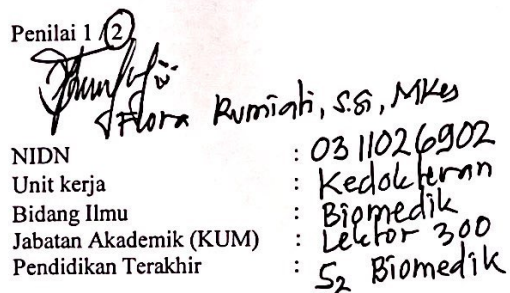 Penilai 1 / 2
Flora Rumiati, S.Si, MKes
NIDN : 0311026902
Unit kerja : Kedokteran
Bidang Ilmu : Biomedik
Jabatan Akademik (KUM) : Lektor 300
Pendidikan Terakhir : S2 Biomedik